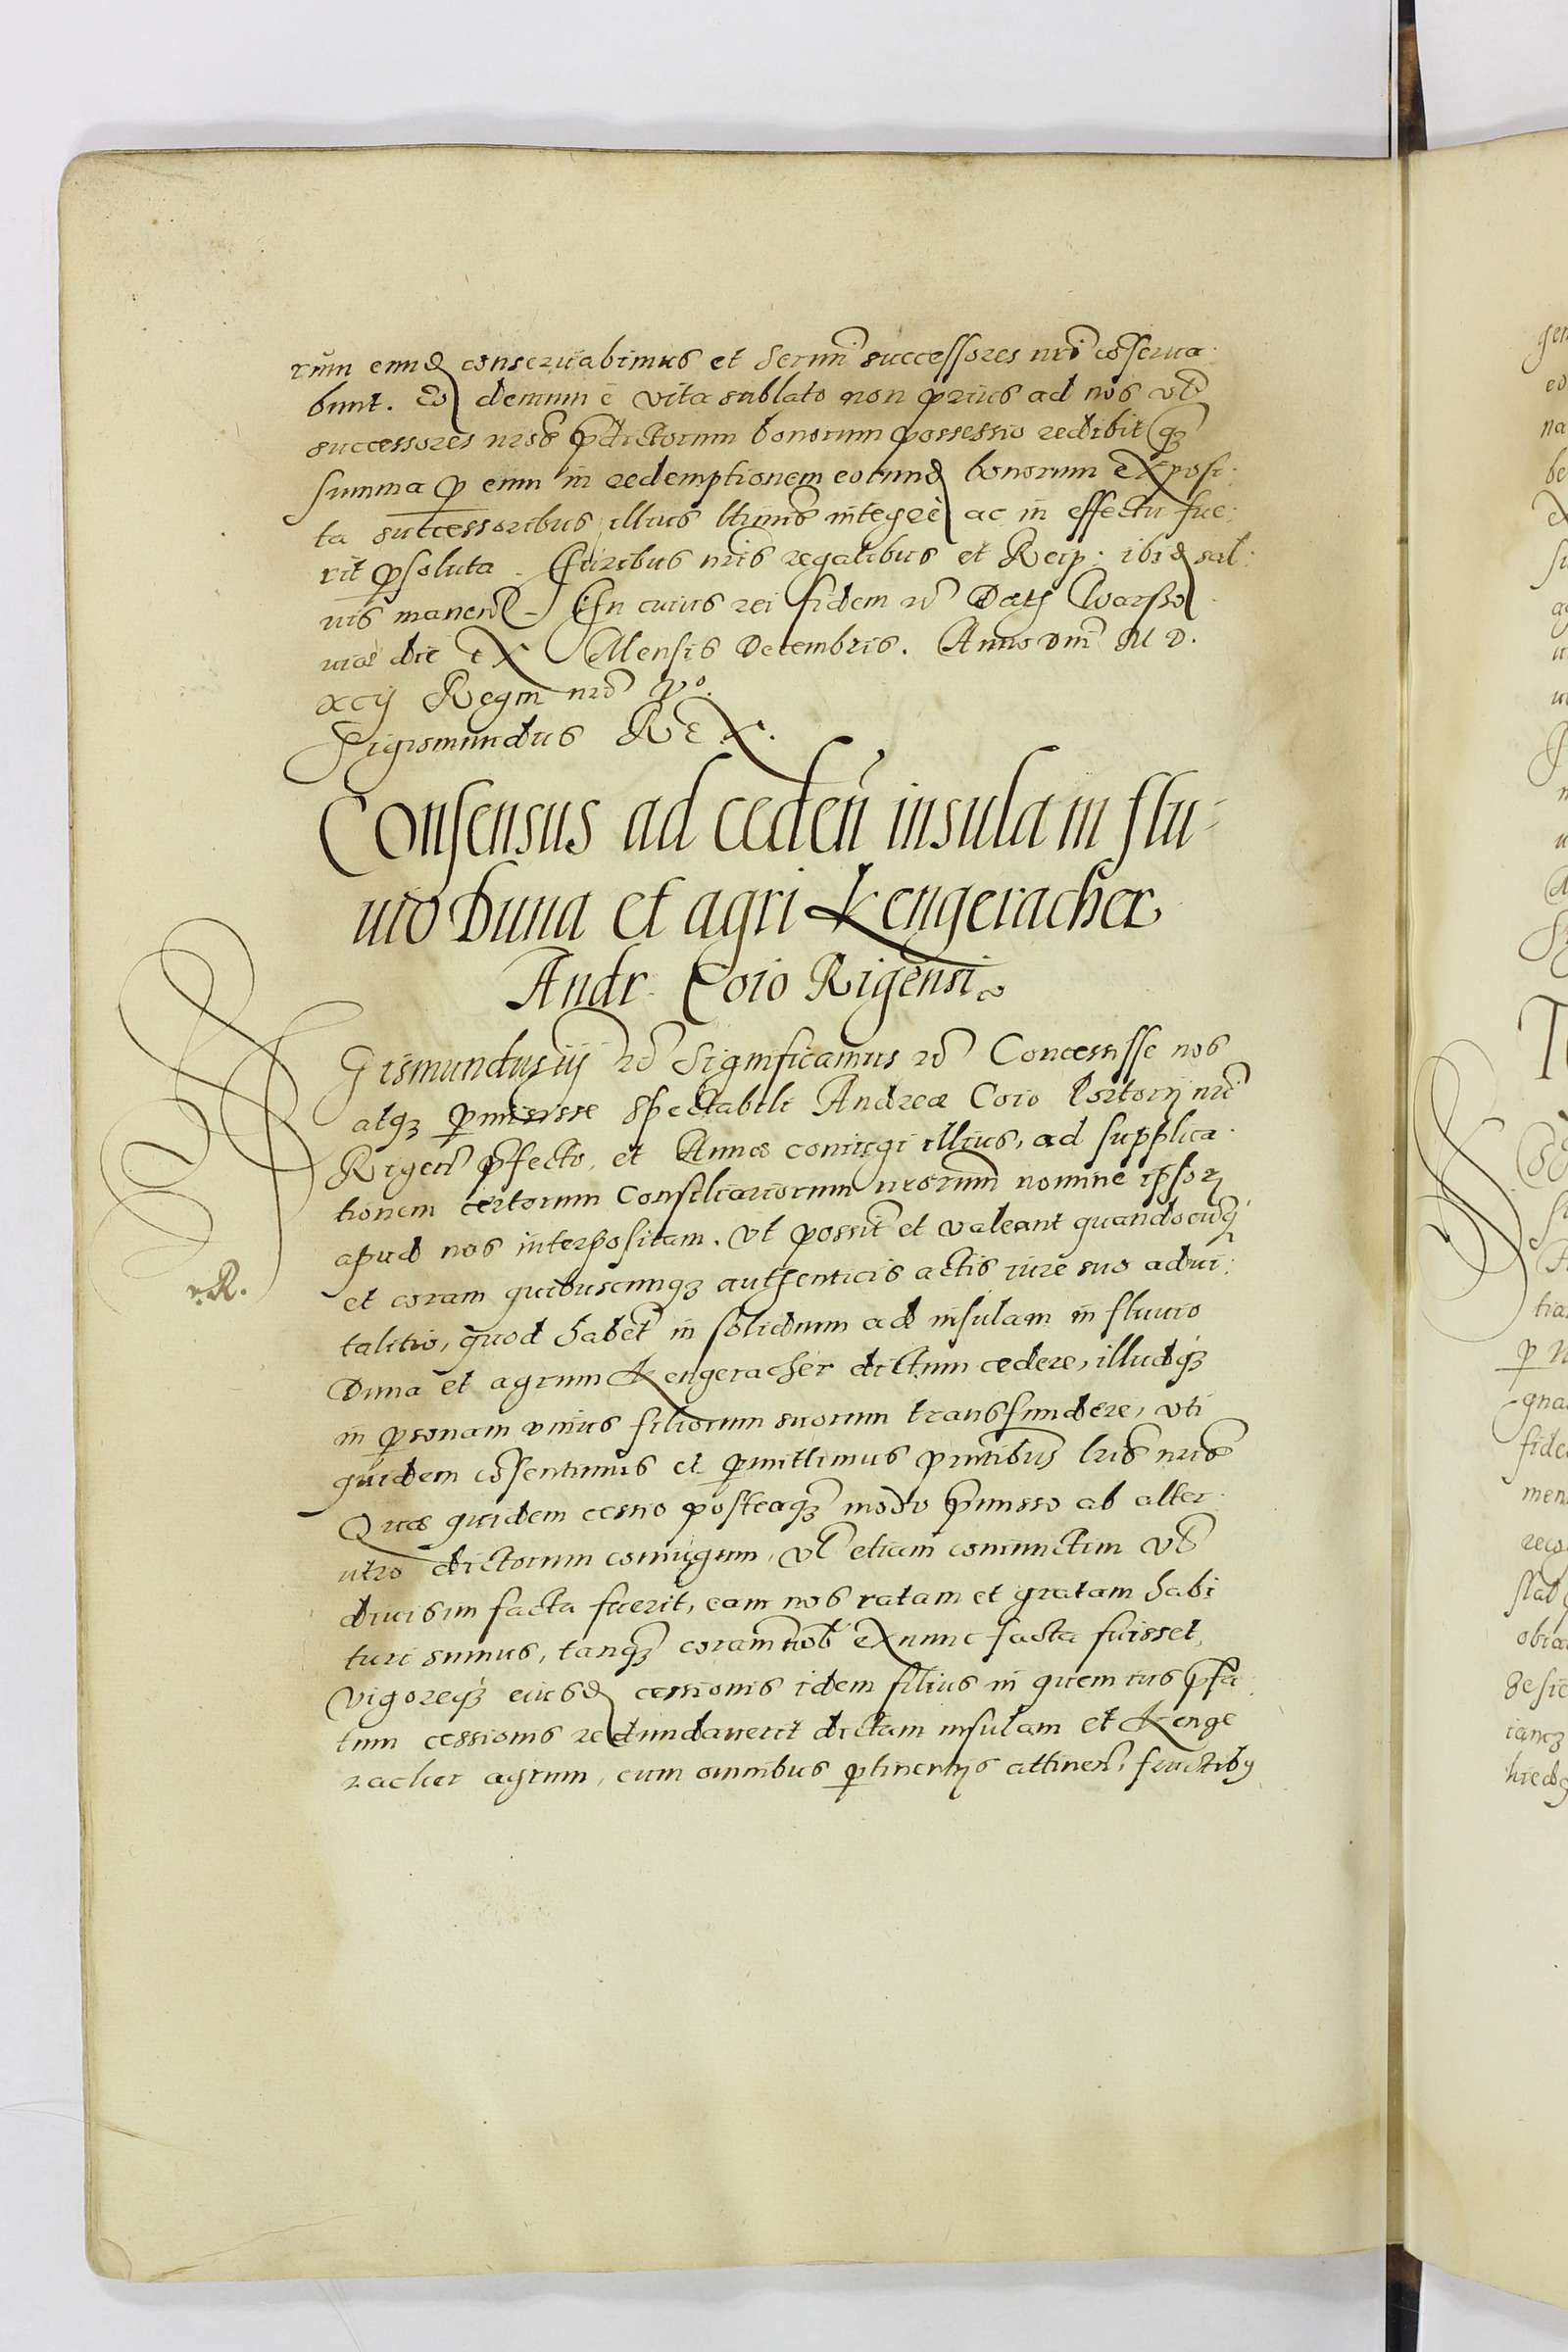 rum eund conseruabimus et Sermi successores nri cōserua
bunt. Eo demum è vita sublato non prius ad nos vl
successores nros pdictorum bonorum possessio redibit qz
summa p eum in redemptionem eorund bonorum exposi:
ta successoribus illius ltimis integrè ac in effectu fue:
rit psoluta. Iuribus nris regalibus et Reip: ibid sal:
uis manen. In cuius rei fidem rc Datj Warsso
uiae die IX Mensis Decembris. Anno Dni M D.
XCij Regn nro Vo.
Sigismundus REX.
Consensus ad ceden insulam flu-
uio Duna et agri Kengeracher
Andr. Coio Rigensi
Sigismundus iij rc Significamus rc Concessisse nos
atqz pmisisse Spectabili Andreæ Coio Portorij nri
Rigen pfecto, et Annæ coniugi illius, ad supplica
tionem certorum Consiliariorum nrorum nomine ipsor
apud nos interpositam. Vt possit et valeant quandocunq
et coram quibuscunqz authenticis actis iure suo adui:
talitio, quod habet in solidum ad insulam in fluuio
Duna et agrum Kengeracher dictum cedere, illudqz
in psonam vnius filiorum suorum transfundere, vti
quidem cōsentimus et pmittimus pntibus lris nris
Quæ quidem cessio posteaqz modo pmisso ab alter
utro dictorum coniugum, vl etiam coniunctim vl
diuisim facta fuerit, eam nos ratam et gratam habi
turi sumus, tanqz coram nob ex nunc facta fuisset,
Vigoreqz eiusd cessionis idem filius in quem ius pfa
tum cessionis redundauerit dictam insulam et Kenge
racher agrum, cum omnibus ptinentijs attinen, fructiby